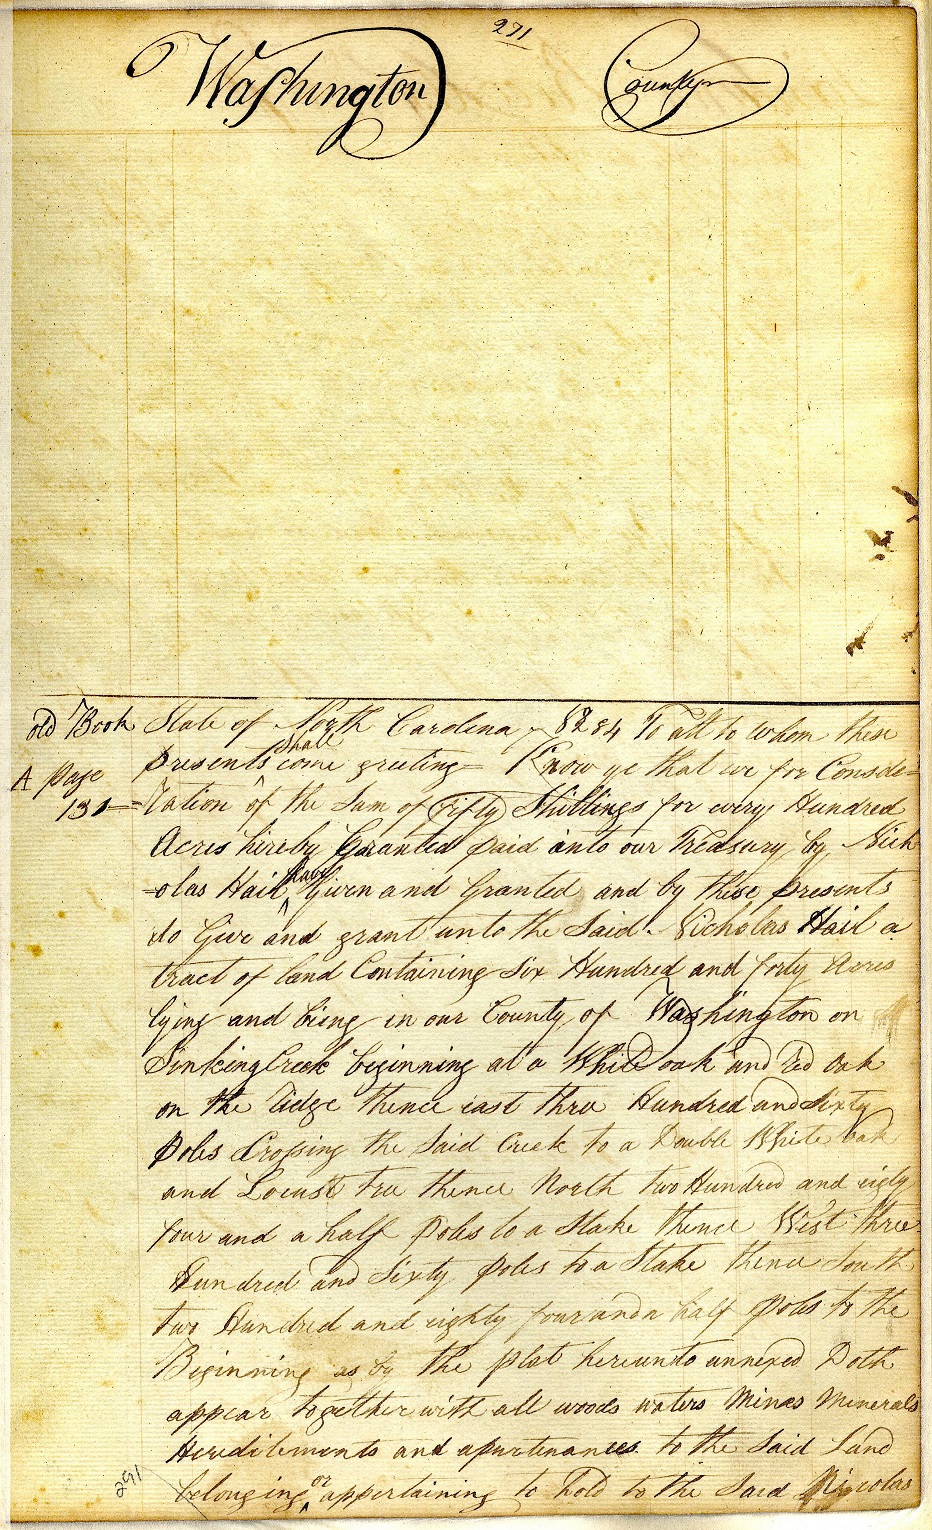 271
Washington County
old Book State of North Carolina 8284 To all to whom these
A page presents shall come greeting Know ye that we for Conside=
131 =ration of the Sum of Fifty Shillings for every Hundred
Acres hireby Granted paid into our Treasury by Nich
-olas Hail have Given and Granted and by these presents
do Give and grant unto the Said Nicholas Hail a
tract of land Containing Six Hundred and forty Acres
lying and being in our County of Washington on
Sinking Creek beginning at a White oak and Red Oak
on the Ridge thence east three Hundred and Sixty
Poles Crossing the Said Creek to a Double White oak
and Locust tree thence North two Hundred and eighty
four and a half Poles to a Stake thence West three
Hundred and Sixty poles to a Stake thence South
two Hundred and eighty four and a half Poles to the
Beginning as by the plat hereunto annexed Doth
appear together with all woods waters Mines Minerals
Hereditements and apurtenances to the Said Land
belonging or appertaining to hold to the Said Nicolas
291